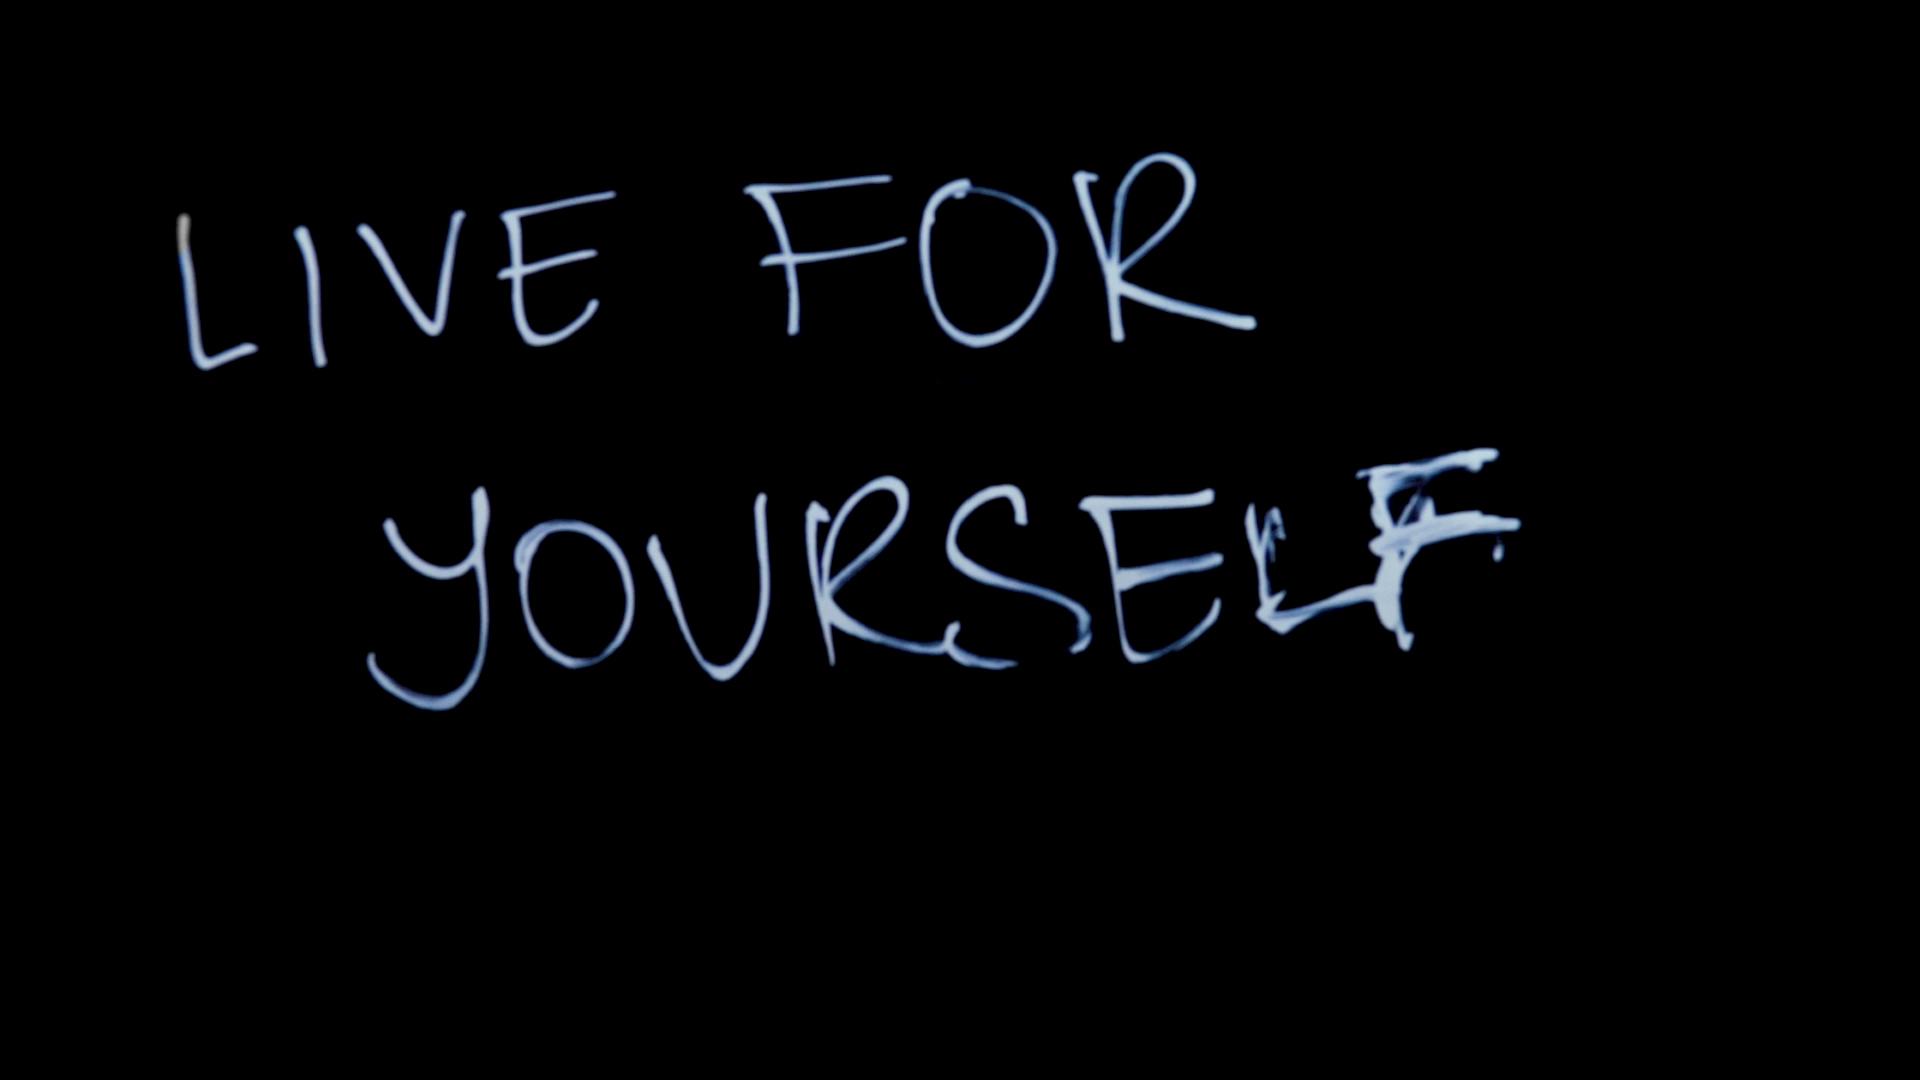 LIVE FOR
YOURSELF